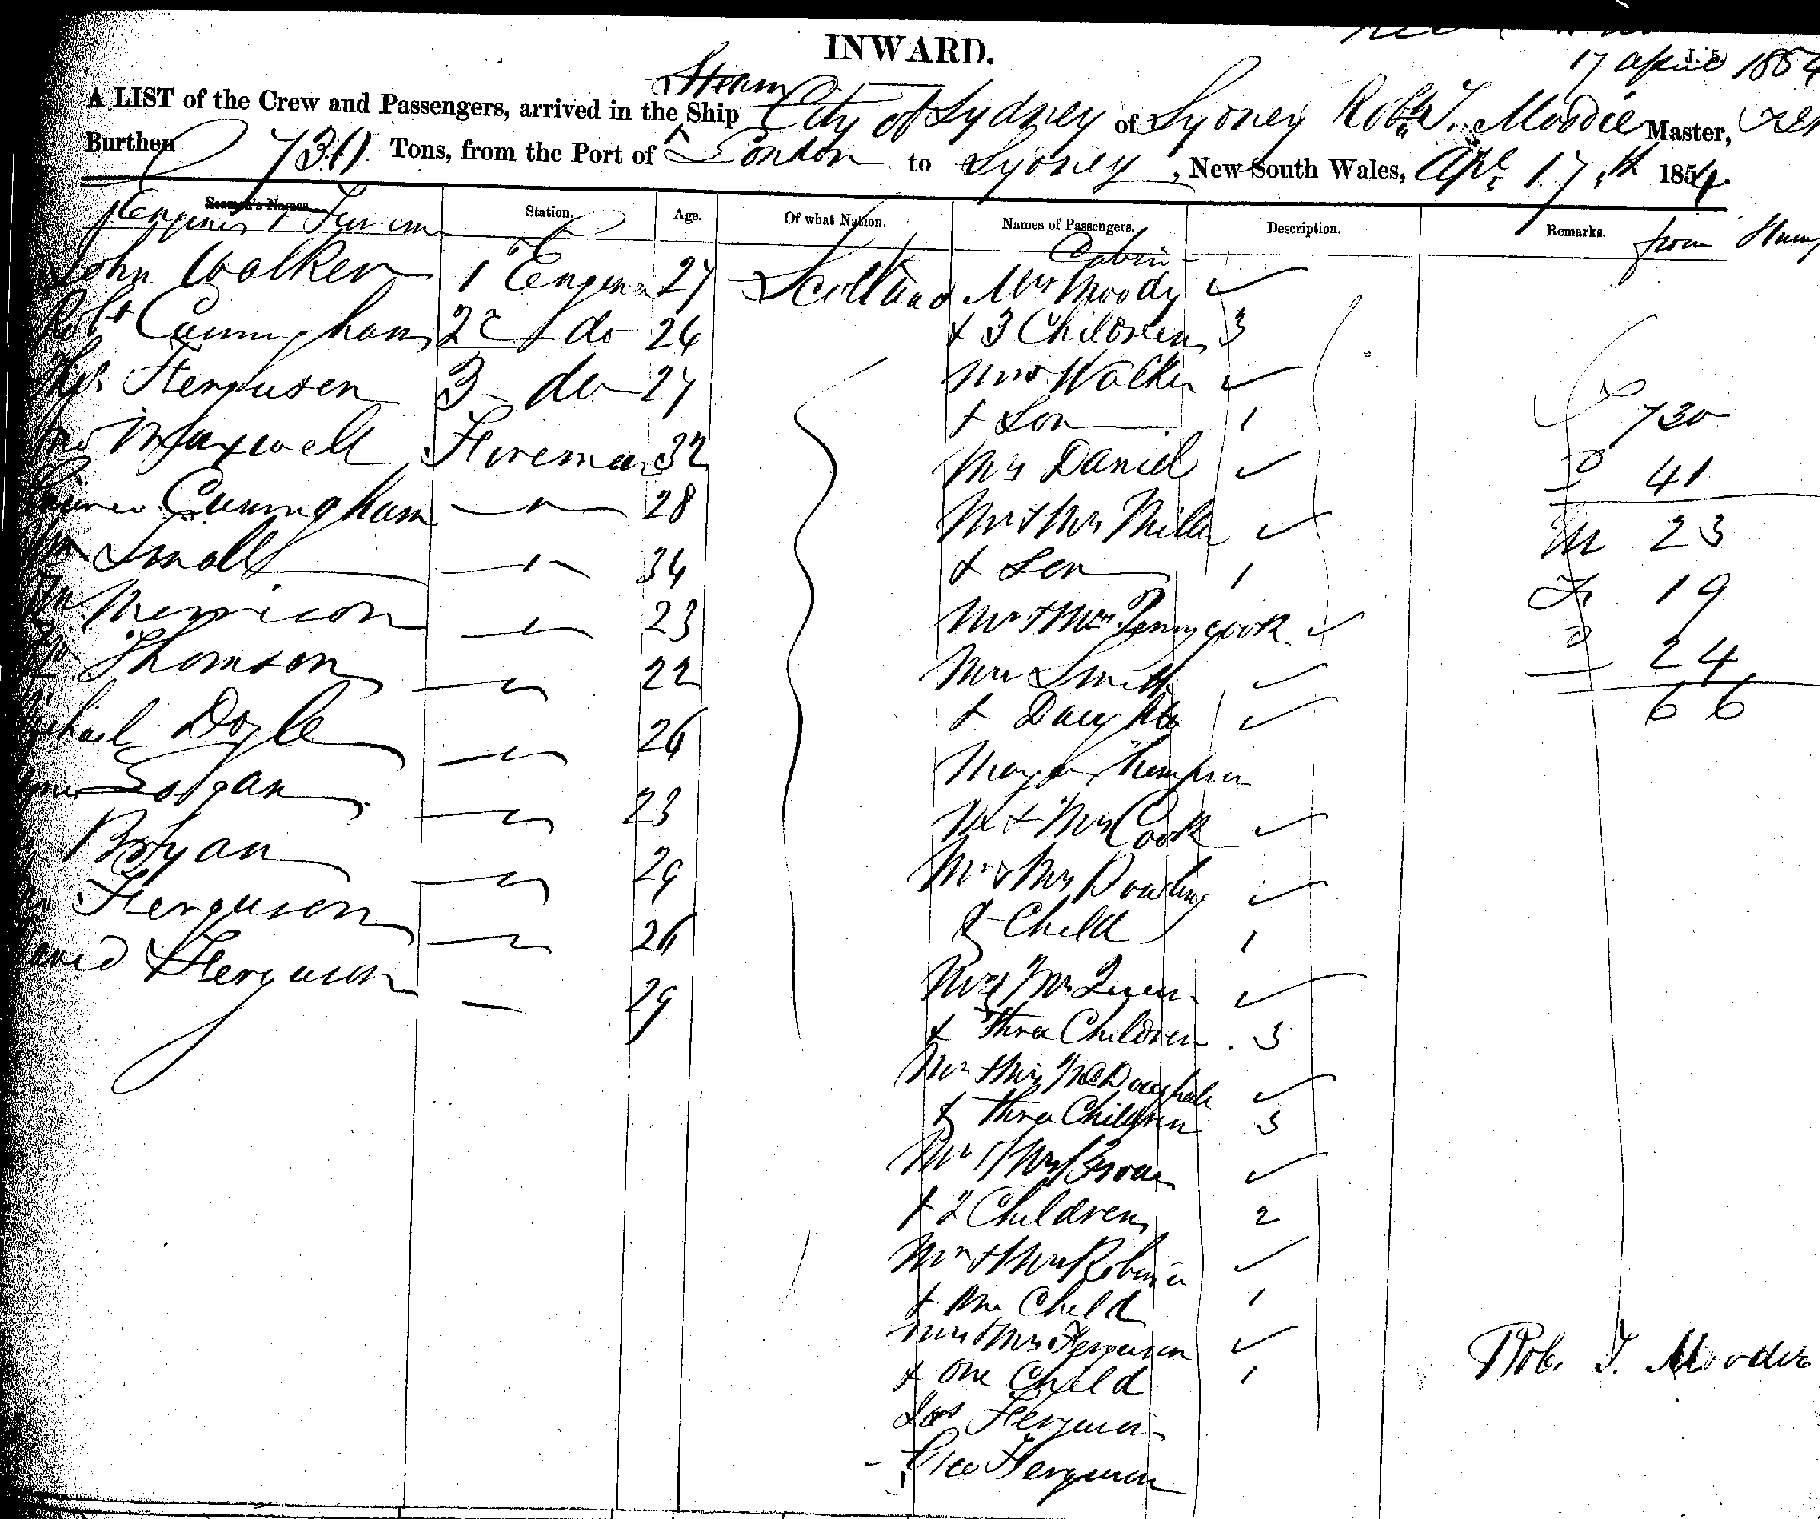 INWARD.
17 April 1854
A LIST of the Crew and Passengers, arrived in the Steam Ship City of Sydney of Sydney Robt T. Moodie Master,
Burthen 730 Tons, from the Port of London to Sydney, New South Wales, Apl 17th 1854
Seamen's Names. Station. Age. Of what Nation. Names of Passengers. Description. Remarks. from
Engineers & Firemen Cabin
John Walker 1 Engineer 27 Scotland Mrs Moody
Robt Cunningham 2d do 26 & 3 Children 3
Ferguson 3 do 27 Mrs Walker
& Son 1
730
Maxwell Fireman 32 Mrs Daniel
41
Cunningham 28 Mr & Mrs Miller
M 23
Small 34 & Son 1
19
Morrison 23 Mr & Mrs Pennycook
Thomson 22 Mrs Smith
24
& Daughter
66
Michael Doyle 26
Thompson
Logan 23 Mr & Mrs Cook
Bryan 29 Mr & Mrs Dowling
& Child 1
Ferguson 26
David Ferguson 29 McQueen
& Three Children 3
Mr & Mrs McDoughale
& Three Children 3
Mr & Mrs Brown
& 2 Children 2
Mr & Mrs Robinson
& One Child 1
Mr & Mrs Ferguson
& One Child 1
Rob. T. Moodie
Jas Ferguson
Ferguson